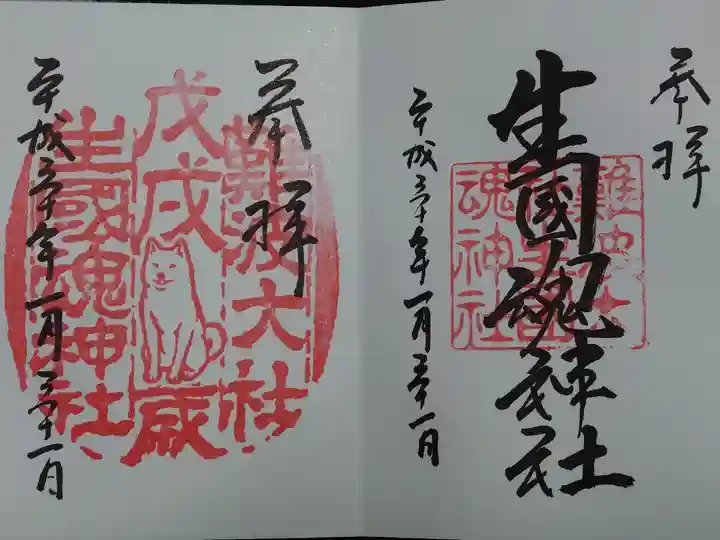 奉拝
生國魂神社
難波大社
魂神社
平成三十年一月三十一日
奉拝
難波大社
戊戌歳
生國魂神社
平成三十年一月三十一日